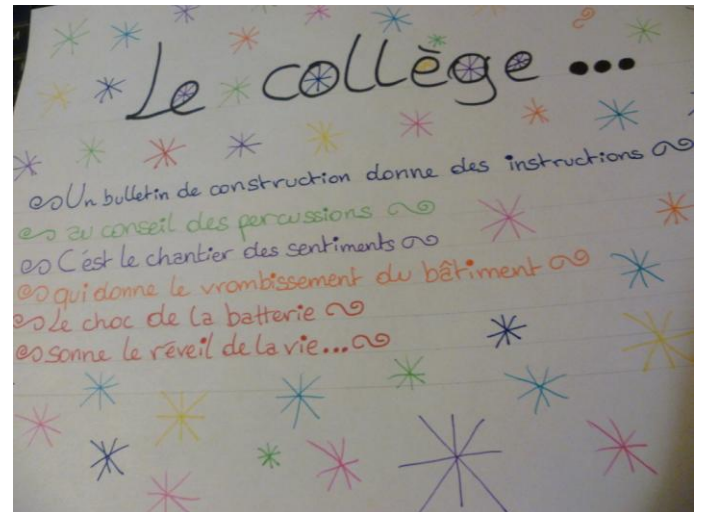 Le collège...
Un bulletin de construction donne des instructions
au conseil des percussions
C'est le chantier des sentiments
qui donne le vrombissement du bâtiment
Le choc de la batterie
sonne le réveil de la vie...